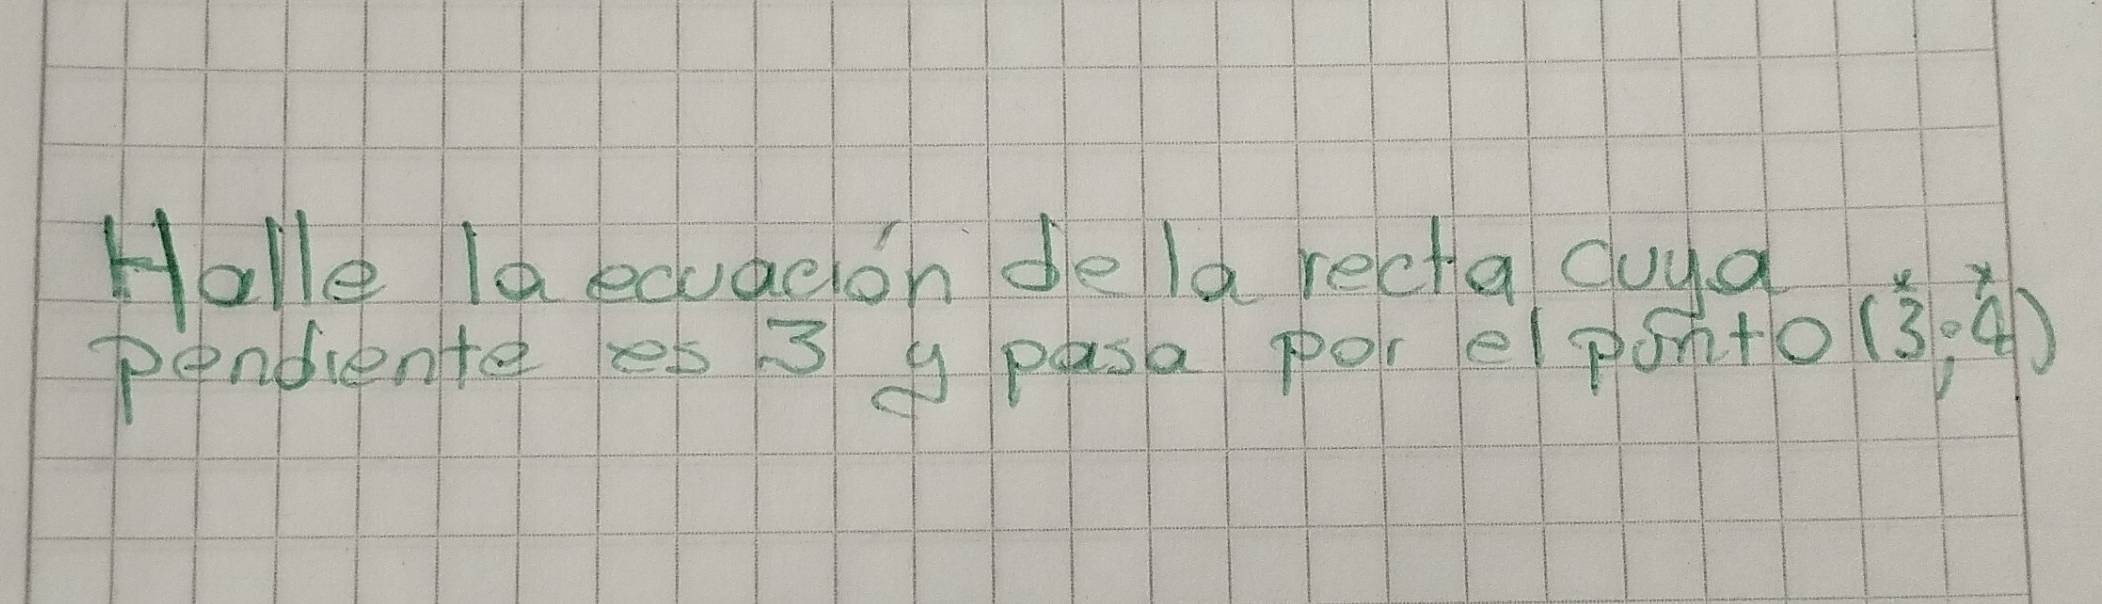 Halle la ecuación de la recta cuya
pendiente es 3 y pasa por el punto (3;4)
x y